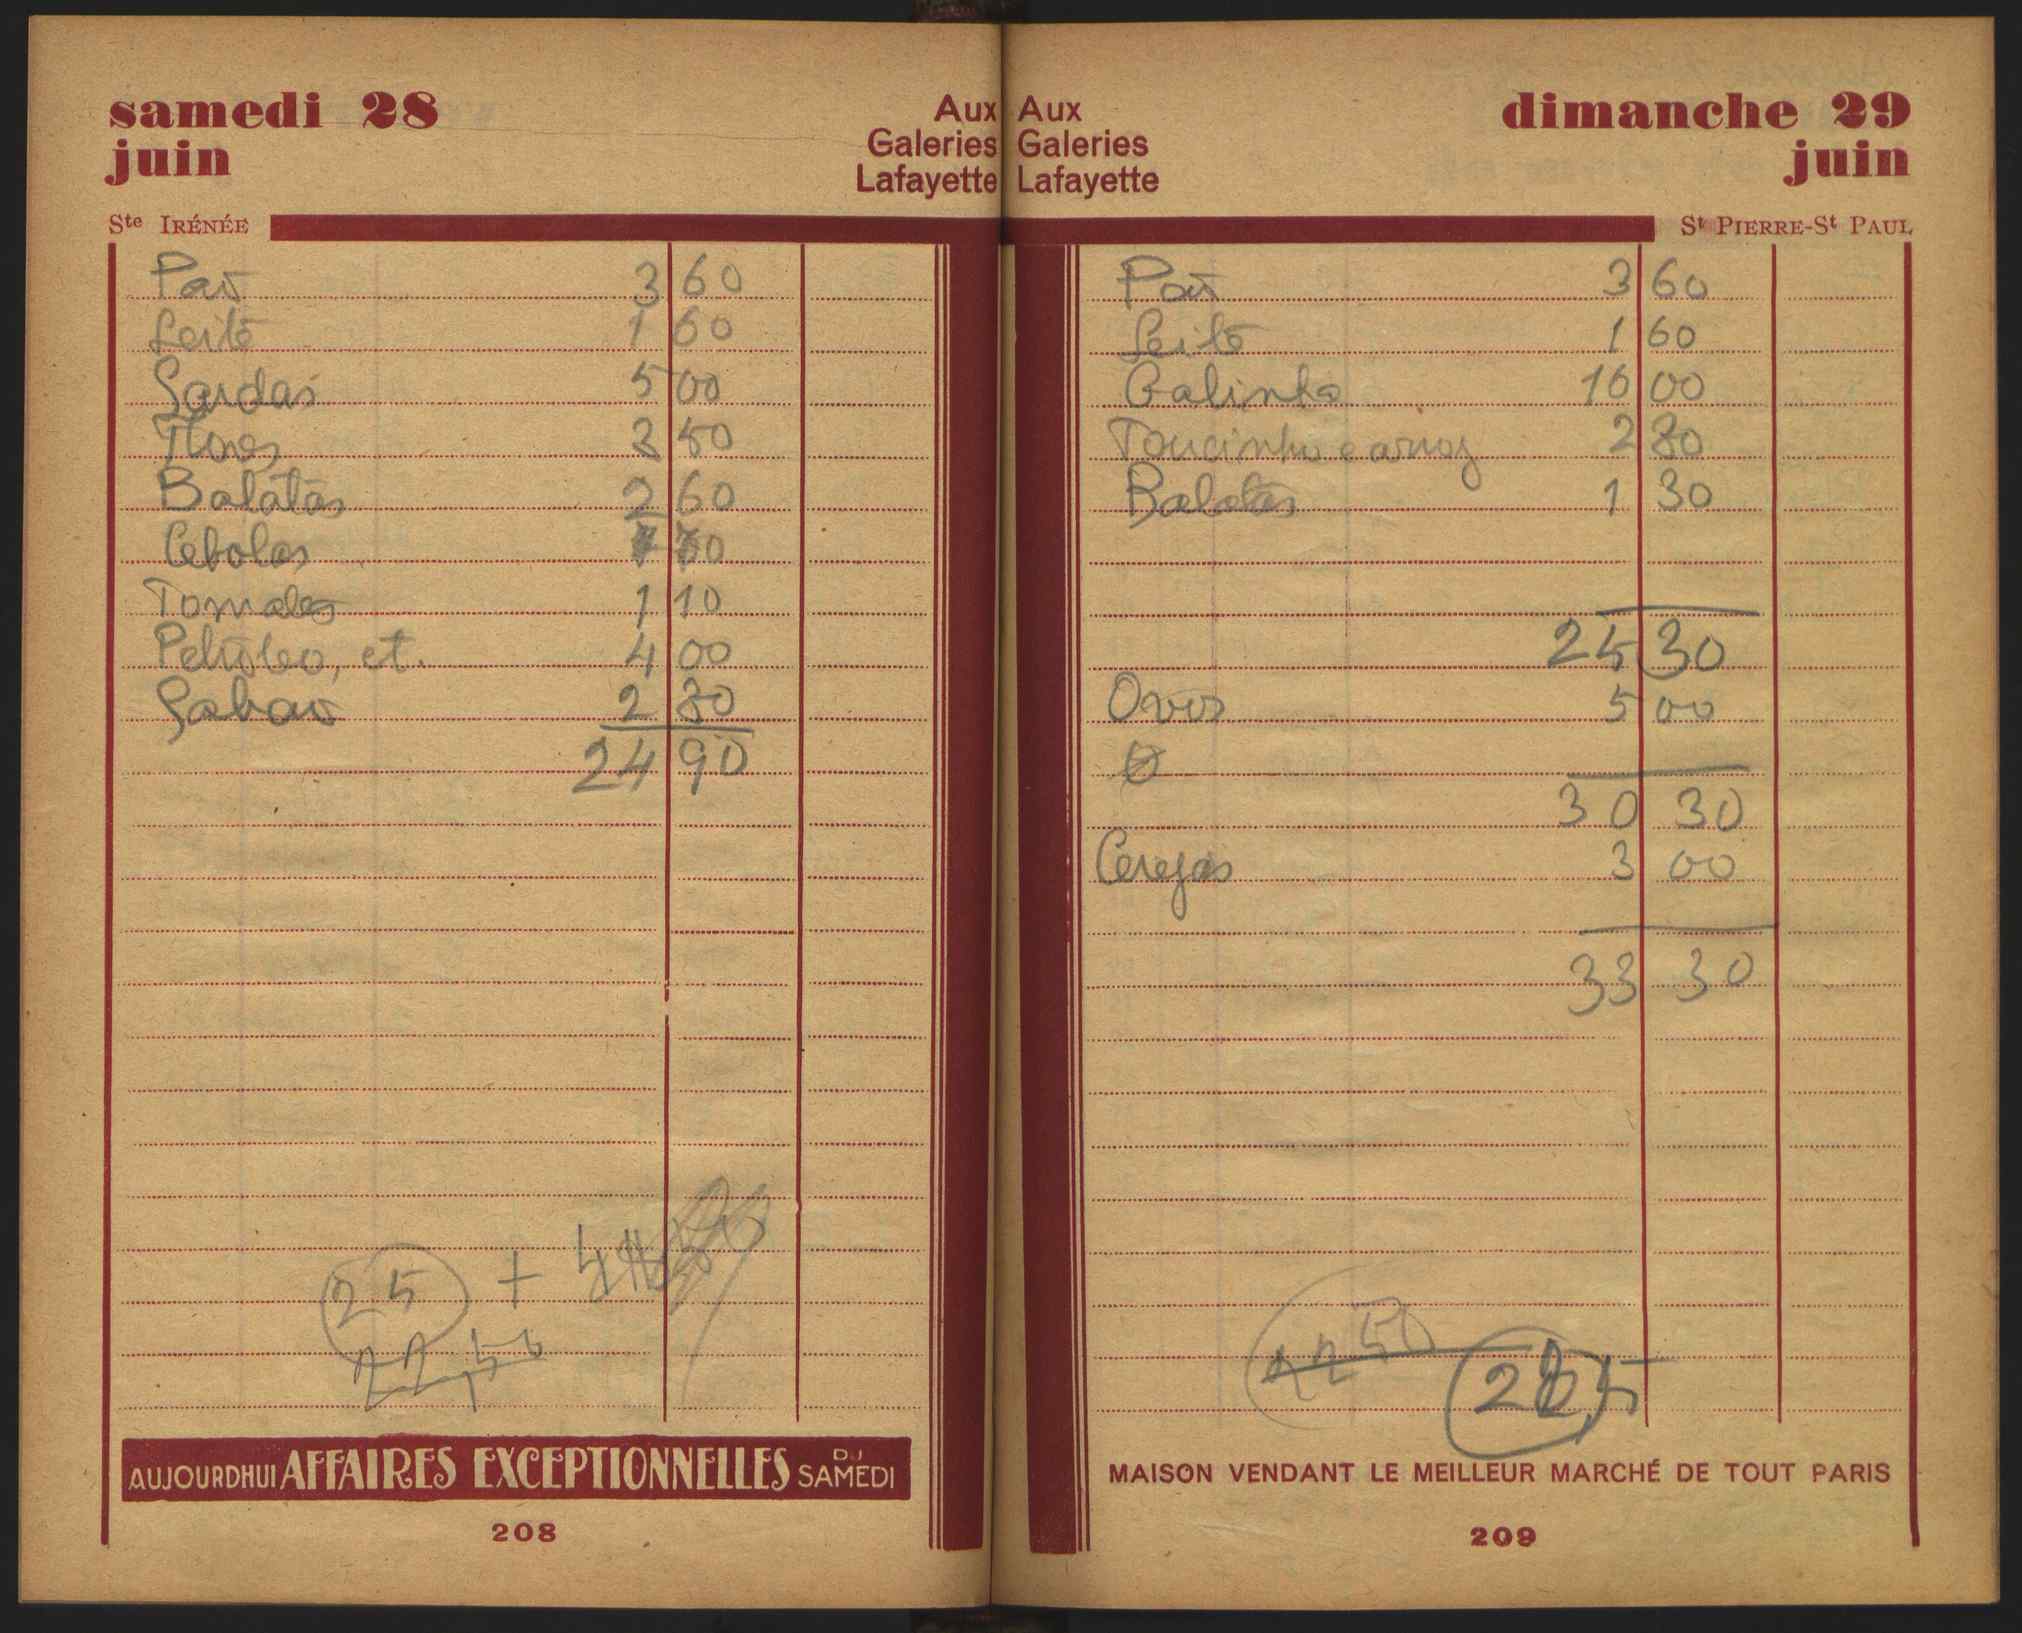 samedi 28
juin
Aux
Galeries
Lafayette
Ste IRÉNÉE
Pão 3 60
Leite 1 60
Sardas 5 00
Flores 3 50
Batatas 2 60
Cebolas 70
Tomates 1 10
Petroleo, et. 4 00
Sabao 2 80
24 90
25 +
22,50
AUJOURDHUI AFFAIRES EXCEPTIONNELLES DU SAMEDI
208
Aux
Galeries
Lafayette
dimanche 29
juin
St PIERRE-St PAUL
Pão 3 60
Leite 1 60
Galinha 16 00
Toucinho e arroz 2 80
Batatas 1 30
25 30
Ovos 5 00
30 30
Cerejas 3 00
33 30
22 50
MAISON VENDANT LE MEILLEUR MARCHÉ DE TOUT PARIS
209